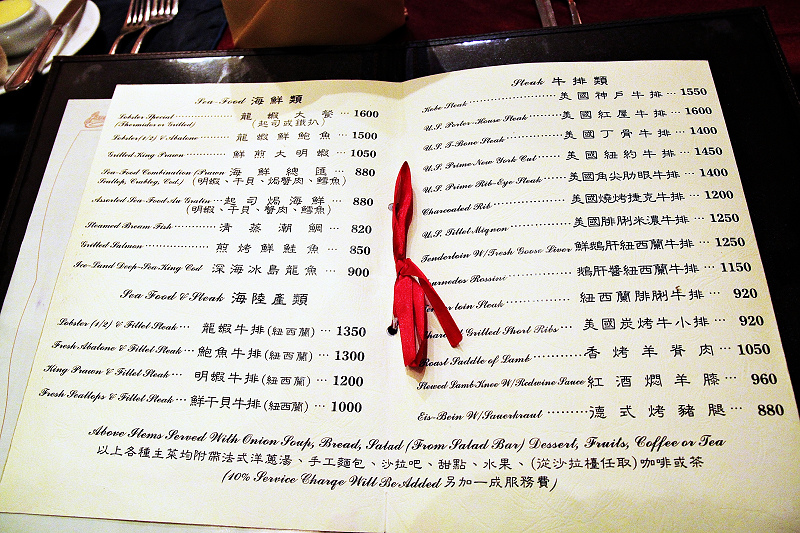 Sea-Food 海鮮類
Lobster Special 龍蝦大餐 1600
(Thermidor or Grilled) (起司或鐵扒)
Lobster(1/2) & Abalone 龍蝦鮮鮑魚 1500
Grilled King Prawn 鮮煎大明蝦 1050
Sea-Food Combination (Prawn 海鮮總匯 880
Scallop, Crableg, Cod) (明蝦、干貝、焗蟹肉、鱈魚)
Assorted Sea-Food Au Gratin 起司焗海鮮 880
(明蝦、干貝、蟹肉、鱈魚)
Steamed Bream Fish 清蒸潮鯛 820
Grilled Salmon 煎烤鮮鮭魚 850
Ice-Land Deep-Sea King Cod 深海冰島龍魚 900
Sea Food & Steak 海陸產類
Lobster (1/2) & Fillet Steak 龍蝦牛排(紐西蘭) 1350
Fresh Abalone & Fillet Steak 鮑魚牛排(紐西蘭) 1300
King Prawn & Fillet Steak 明蝦牛排(紐西蘭) 1200
Fresh Scallops & Fillet Steak 鮮干貝牛排(紐西蘭) 1000
Steak 牛排類
Kobe Steak 美國神戶牛排 1550
U.S. Porter-House Steak 美國紅屋牛排 1600
U.S. T-Bone Steak 美國丁骨牛排 1400
U.S. Prime New York Cut 美國紐約牛排 1450
U.S. Prime Rib-Eye Steak 美國角尖肋眼牛排 1400
Charcoaled Rib 美國燒烤捷克牛排 1200
U.S. Fillet Mignon 美國腓脷米濃牛排 1250
Tenderloin W/Fresh Goose Liver 鮮鵝肝紐西蘭牛排 1250
Tournedos Rossini 鵝肝醬紐西蘭牛排 1150
loin Steak 紐西蘭腓脷牛排 920
Grilled Short Ribs 美國炭烤牛小排 920
Roast Saddle of Lamb 香烤羊脊肉 1050
Stewed Lamb Knee W/Redwine Sauce 紅酒燜羊膝 960
Eis-Bein W/Sauerkraut 德式烤豬腿 880
Above Items Served With Onion Soup, Bread, Salad (From Salad Bar) Dessert, Fruits, Coffee or Tea
以上各種主菜均附帶法式洋蔥湯、手工麵包、沙拉吧、甜點、水果、(從沙拉檯任取)咖啡或茶
(10% Service Charge Will Be Added 另加一成服務費)